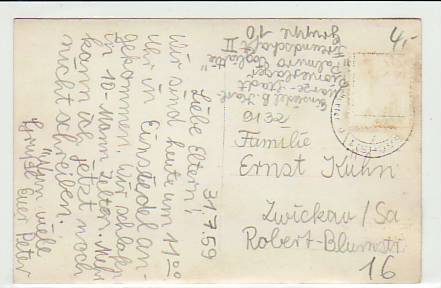 31.7.59
Liebe Eltern!
Wir sind heute um 11⁰⁰
Uhr in Einsiedel an-
gekommen. Wir schlafen
in 10-Mann Zelten. Mehr
kann ich jetzt noch
nicht schreiben.
viele
Grüße Euer Peter
4,-
Einsiedel b. Karl-
Marx-Stadt
Pionierlager
"Palmiro Togliatti"
Freundschaft II
Gruppe 10
9132
Familie
Ernst Kuhn
Zwickau/Sa
Robert-Blumstr.
16